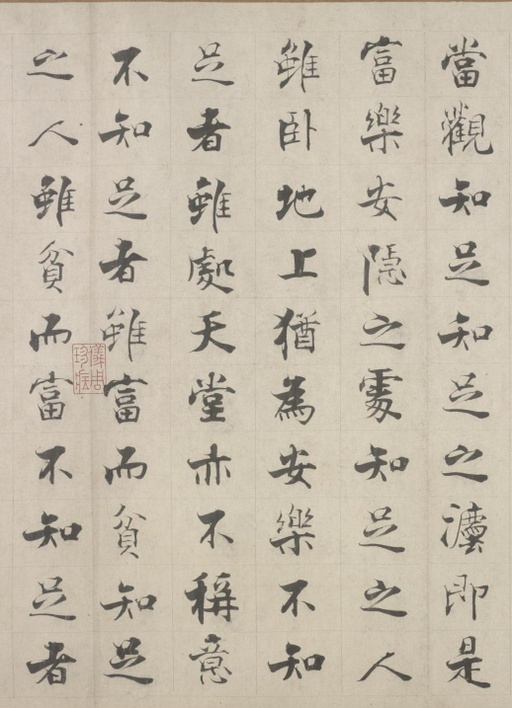 當觀知足知足之灋即是
富樂安隱之處知足之人
雖卧地上猶為安樂不知
足者雖處天堂亦不稱意
不知足者雖富而貧知足
之人雖貧而富不知足者
儀周珍藏